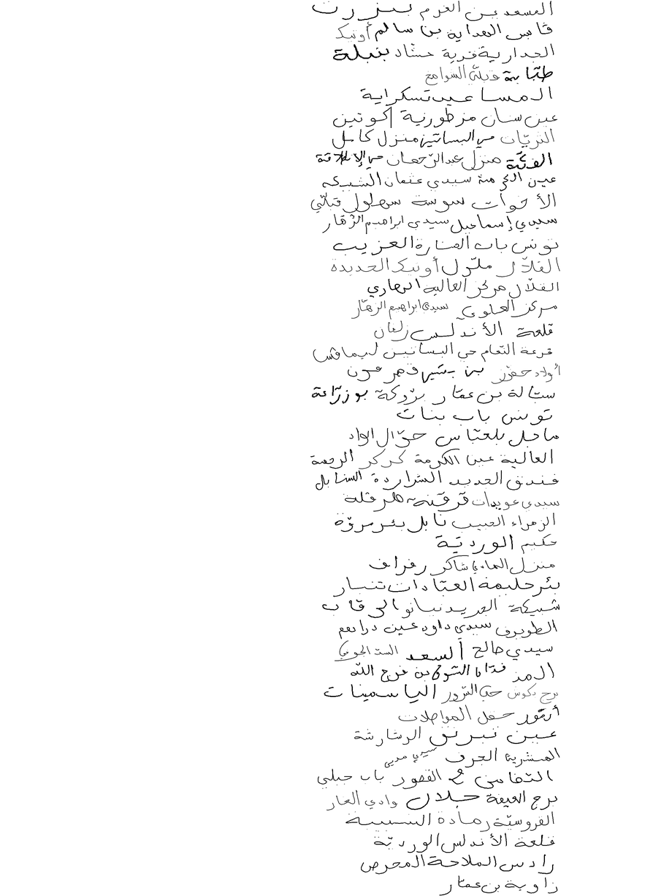 المسعدين القروم بنزرت
قابس الهداية بن سالم أوتيك
الجدارية قرية حشاد بنبلة
طبابة قبلي السوامع
المساعيد تسكراية
عين سنان مزطورية أكوتين
التريات حي البساتين منزل كامل
الفكة منزل عبد الرحمان حي
عين الكرمة سيدي عثمان الشبيكة
الأخوات سوسة سهلول قبلي
سيدي إسماعيل سيدي ابراهيم الزهار
تونس باب المنارة العزيب
الفلال ملول أوتيك الجديدة
الفلال مركز العالية الهاري
مركز العلوي سيدي ابراهيم الزهار
قلعة الأندلس زلفان
قرعة النعام حي البساتين ليماقس
أولاد حفوز بن بشير قمر عون
سبالة بن عمار بروكة بوزراعة
تونس باب بنات
ماجل بلعباس الواد
العالية عين الكرمة كركر الرحمة
فندق الحديد الشراردة السنابل
سيدي عويدات قرقنة هرقلة
الزهراء الحبيب نابل بئر مروة
حكيم الوردية
منزل الهادي شاكر رفراف
بئر حليمة العبادات تنبار
شبيكة الجريد نبانو الى قاب
الطويرف سيدي داود عين دراهم
سيدي صالح السعد
بن فرج الله
برج الياسمينات
حقل المواصلات
عين نبرنق الرشارشة
المشرية الجرف
النفاتي القصور باب جبلي
برج العيفة جلال وادي العار
الفروسية رمادة السبيبة
قلعة الأندلس الوردية
رادس الملاحة المحرص
زاوية بن عمار